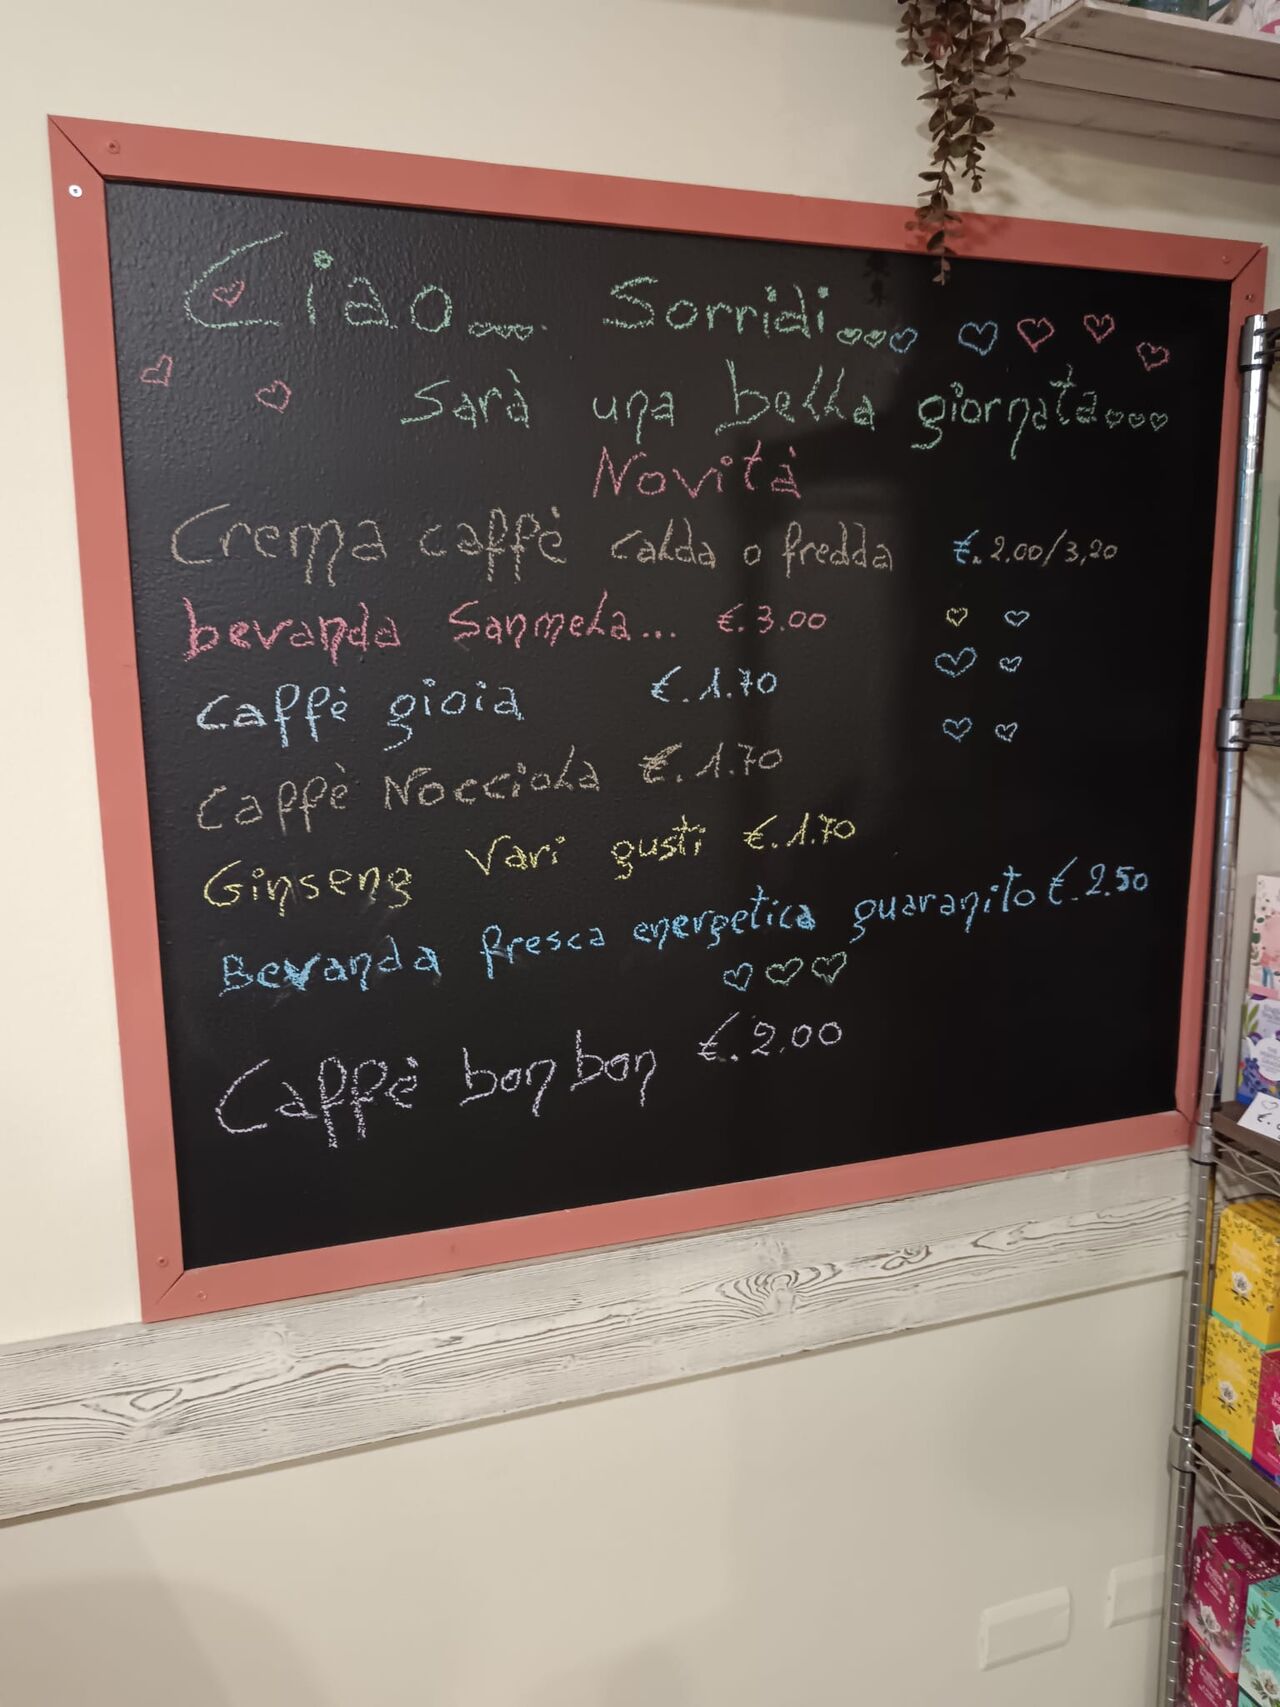 Ciao... Sorridi...
Sarà una bella giornata...
Novità
Crema caffè calda o fredda €. 2.00/3,20
bevanda Sanmela... €. 3.00
Caffè gioia €. 1.70
Caffè Nocciola €. 1.70
Ginseng Vari gusti €. 1.70
Bevanda fresca energetica guaranito €. 2.50
Caffè bon bon €. 2.00